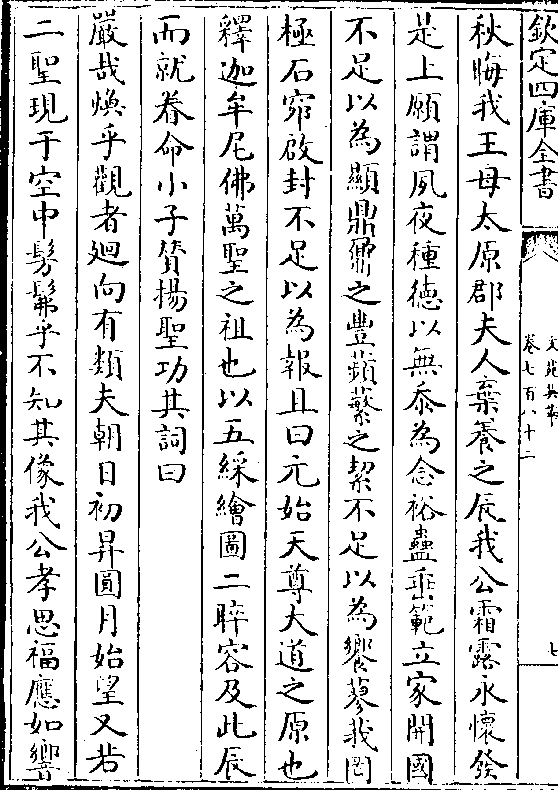 欽定四庫全書
文苑英華
卷七百八十二
七
秋晦我王母太原郡夫人棄養之辰我公霜露永懷發
是上願謂夙夜種德以無忝為念裕蠱垂範立家開國
不足以為顯鼎鼐之豐蘋蘩之絜不足以為饗蓼莪罔
極石窌啟封不足以為報且曰元始天尊大道之原也
釋迦牟尼佛萬聖之祖也以五綵繪圖二睟容及此辰
而就眷命小子賛揚聖功其詞曰
嚴哉煥乎觀者廻向有類夫朝日初昇圓月始望又若
二聖現于空中髣髴乎不知其像我公孝思福應如響